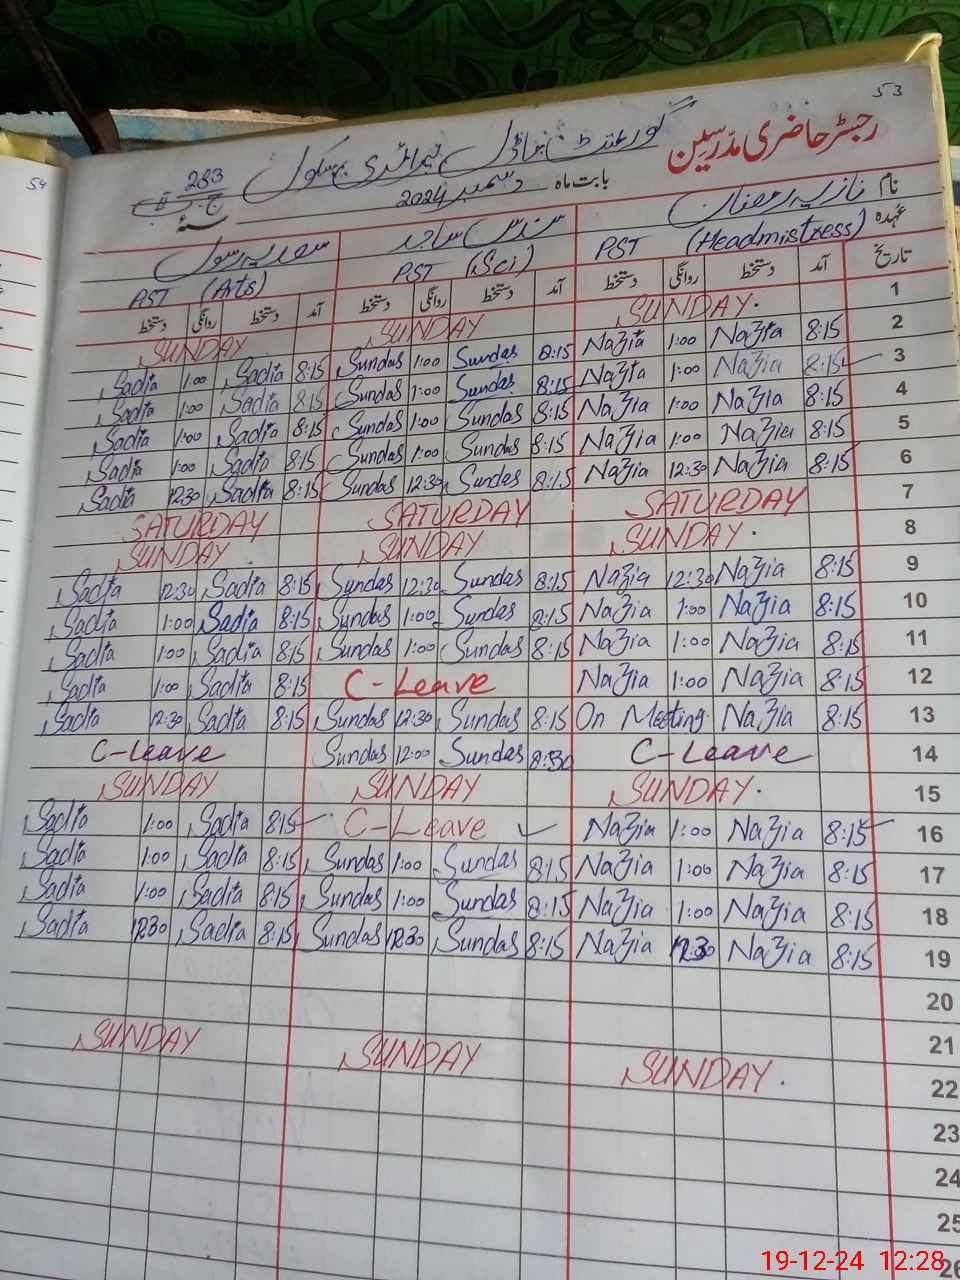 53
54
رجسٹر حاضری مدرسین
گورنمنٹ ماڈل پرائمری سکول 283 ج ب
بابت ماہ دسمبر 2024
نام نازیہ رمضان سندس ساجد سعدیہ رسول
عہدہ PST (Headmistress) PST (Sci) PST (Arts)
تاریخ آمد دستخط روانگی دستخط آمد دستخط روانگی دستخط آمد دستخط روانگی دستخط
SUNDAY SUNDAY SUNDAY. 1
Sadia 1:00 Sadia 8:15 Sundas 1:00 Sundas 8:15 Nazia 1:00 Nazia 8:15 2
Sadia 1:00 Sadia 8:15 Sundas 1:00 Sundas 8:15 Nazia 1:00 Nazia 8:15 3
Sadia 1:00 Sadia 8:15 Sundas 1:00 Sundas 8:15 Nazia 1:00 Nazia 8:15 4
Sadia 1:00 Sadia 8:15 Sundas 1:00 Sundas 8:15 Nazia 1:00 Nazia 8:15 5
Sadia 12:30 Sadia 8:15 Sundas 12:30 Sundas 8:15 Nazia 12:30 Nazia 8:15 6
SATURDAY SATURDAY SATURDAY 7
SUNDAY SUNDAY SUNDAY. 8
Sadia 12:30 Sadia 8:15 Sundas 12:30 Sundas 8:15 Nazia 12:30 Nazia 8:15 9
Sadia 1:00 Sadia 8:15 Sundas 1:00 Sundas 8:15 Nazia 1:00 Nazia 8:15 10
Sadia 1:00 Sadia 8:15 Sundas 1:00 Sundas 8:15 Nazia 1:00 Nazia 8:15 11
Sadia 1:00 Sadia 8:15 C-Leave Nazia 1:00 Nazia 8:15 12
Sadia 12:30 Sadia 8:15 Sundas 12:30 Sundas 8:15 On Meeting Nazia 8:15 13
C-Leave Sundas 12:00 Sundas 8:30 C-Leave 14
SUNDAY SUNDAY SUNDAY. 15
Sadia 1:00 Sadia 8:15 C-Leave Nazia 1:00 Nazia 8:15 16
Sadia 1:00 Sadia 8:15 Sundas 1:00 Sundas 8:15 Nazia 1:00 Nazia 8:15 17
Sadia 1:00 Sadia 8:15 Sundas 1:00 Sundas 8:15 Nazia 1:00 Nazia 8:15 18
Sadia 12:30 Sadia 8:15 Sundas 12:30 Sundas 8:15 Nazia 12:30 Nazia 8:15 19
20
21
SUNDAY SUNDAY SUNDAY. 22
23
24
25
26
19-12-24 12:28